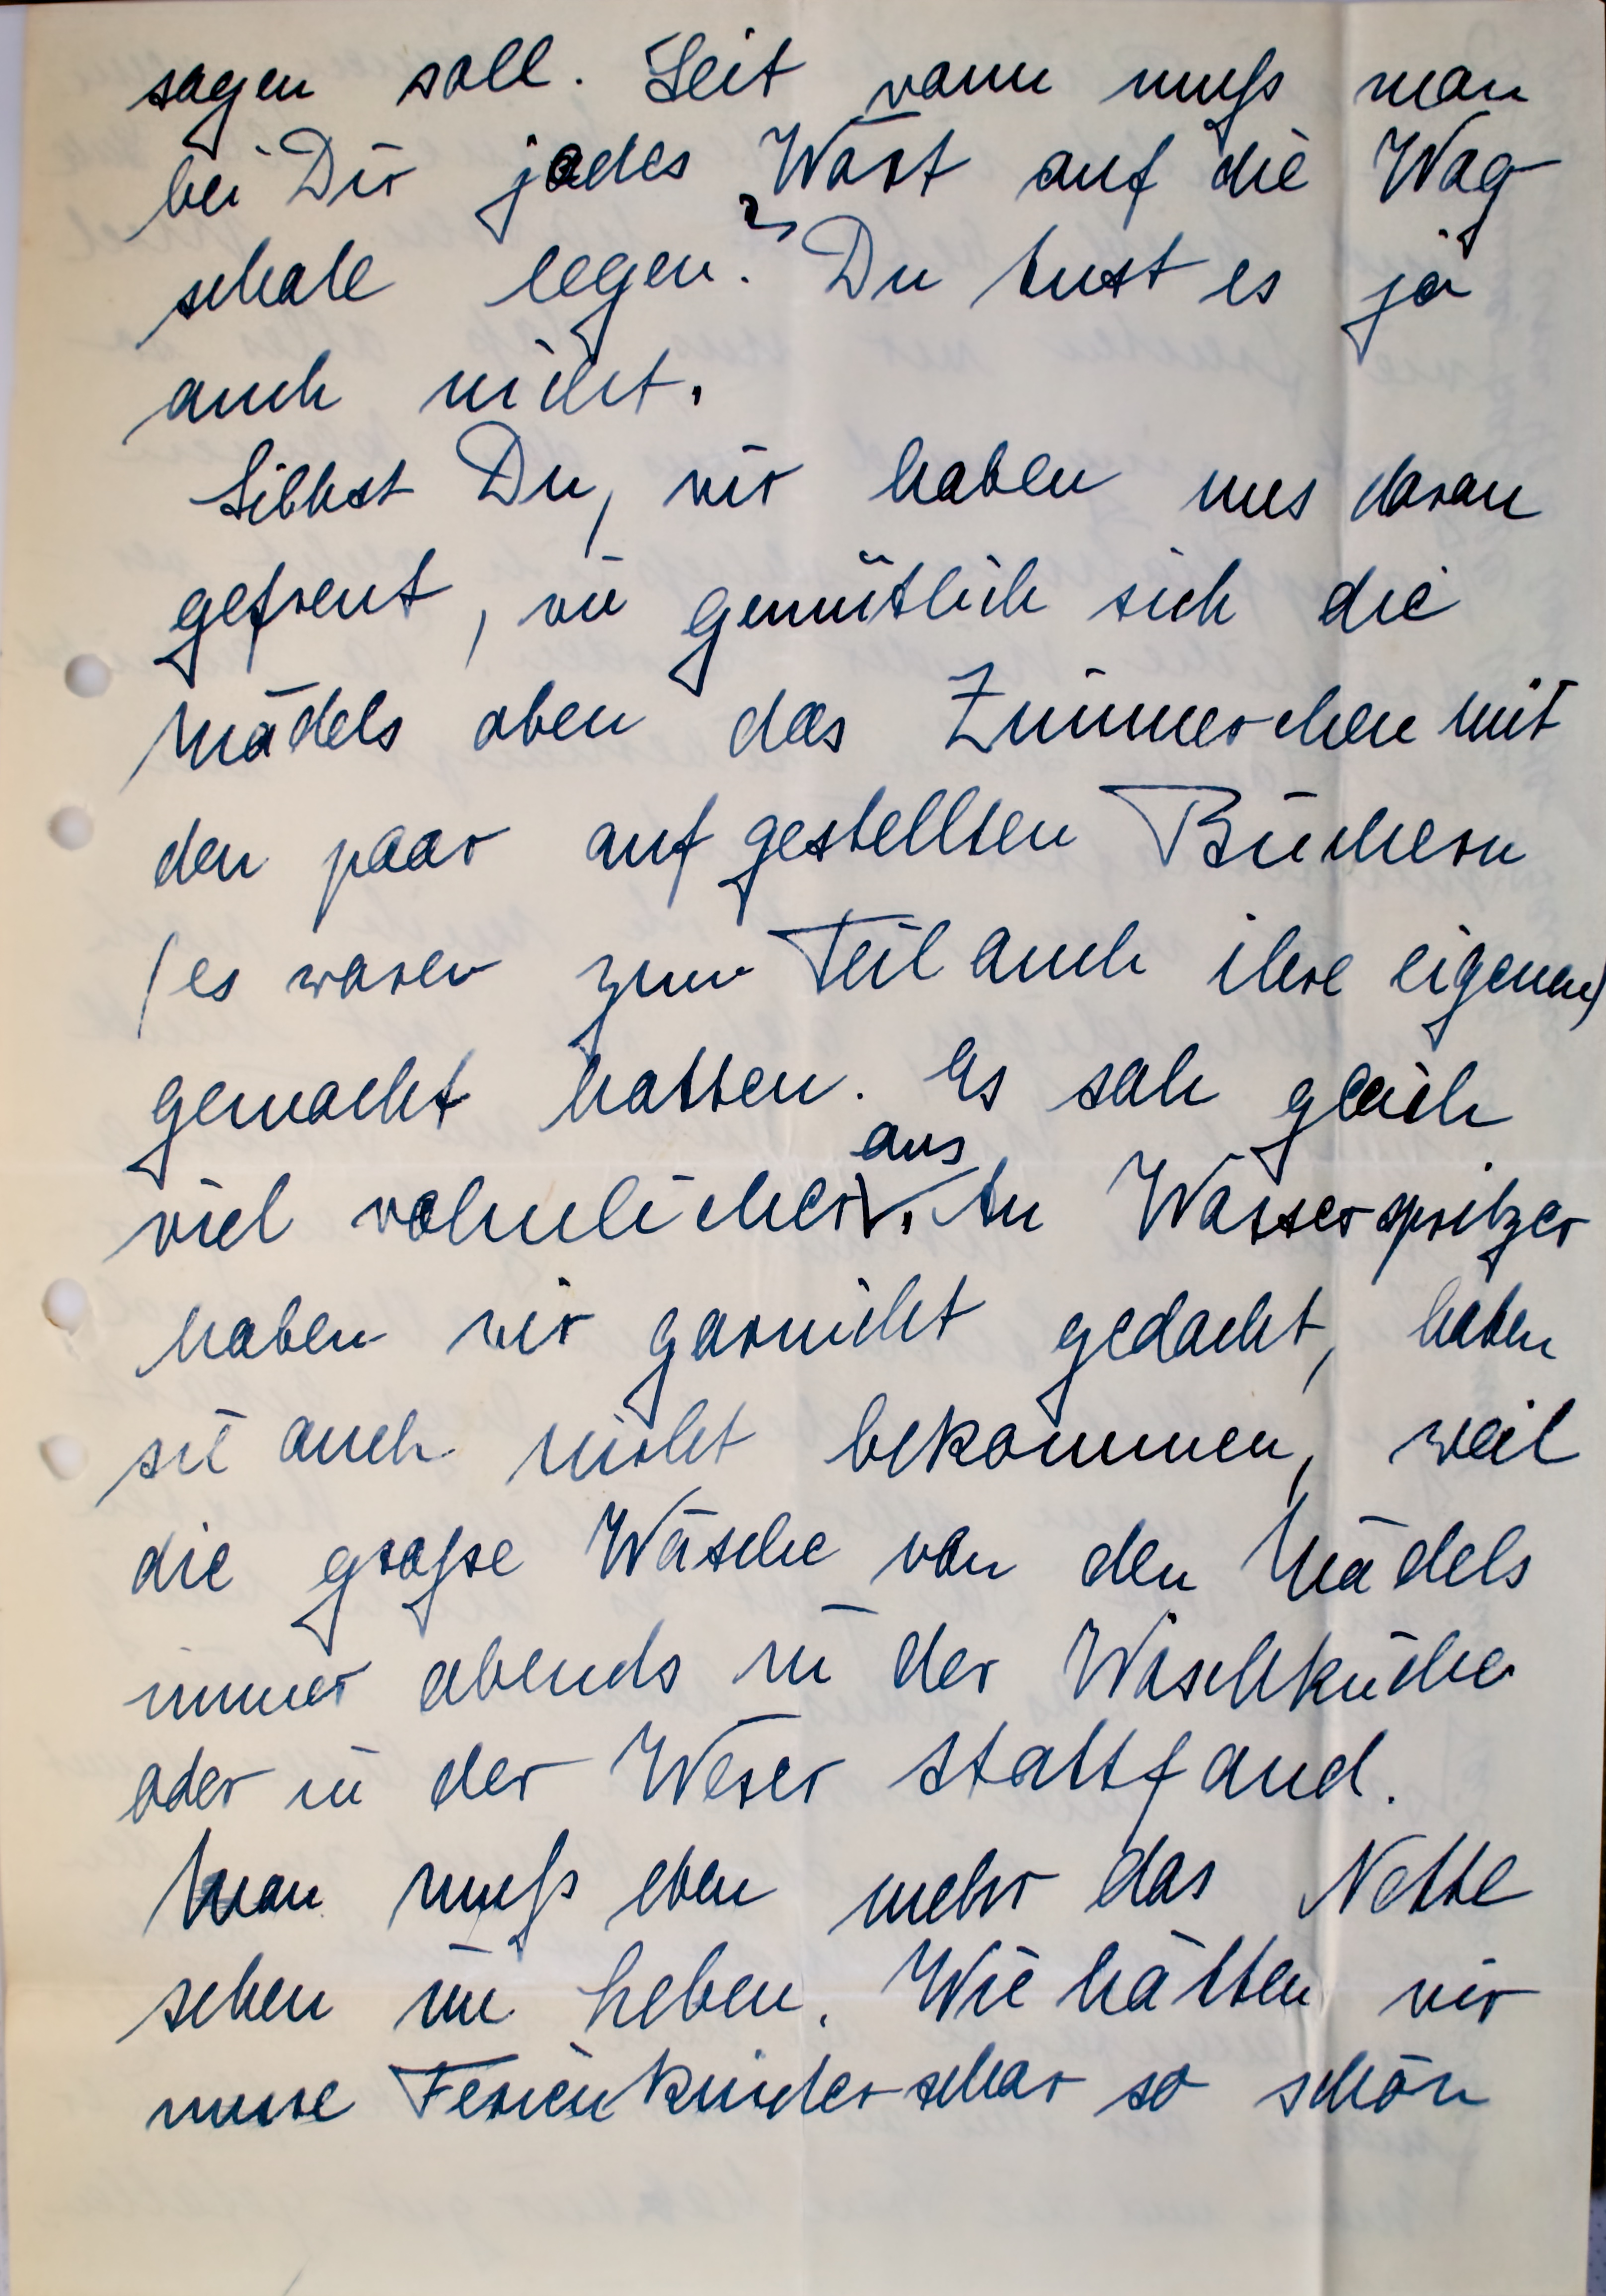 sagen soll. Seit wann muß man
bei Dir jedes Wort auf die Wag
schale legen? Du tust es ja
auch nicht.
Siehst Du, wir haben uns daran
gefreut, wie gemütlich sich die
Mädels oben das Zimmerchen mit
den paar aufgestellten Büchern
(es waren zum Teil auch ihre eigenen)
gemacht hatten. Es sah gleich
viel wohnlicher aus. An Wasserspritzer
haben wir garnicht gedacht, haben
sie auch nicht bekommen, weil
die große Wäsche von den Mädels
immer abends in der Waschküche
oder in der Weser stattfand.
Man muß eben mehr das Nette
sehen im Leben. Wie hätten wir
unsre Ferienkinderschar so schön